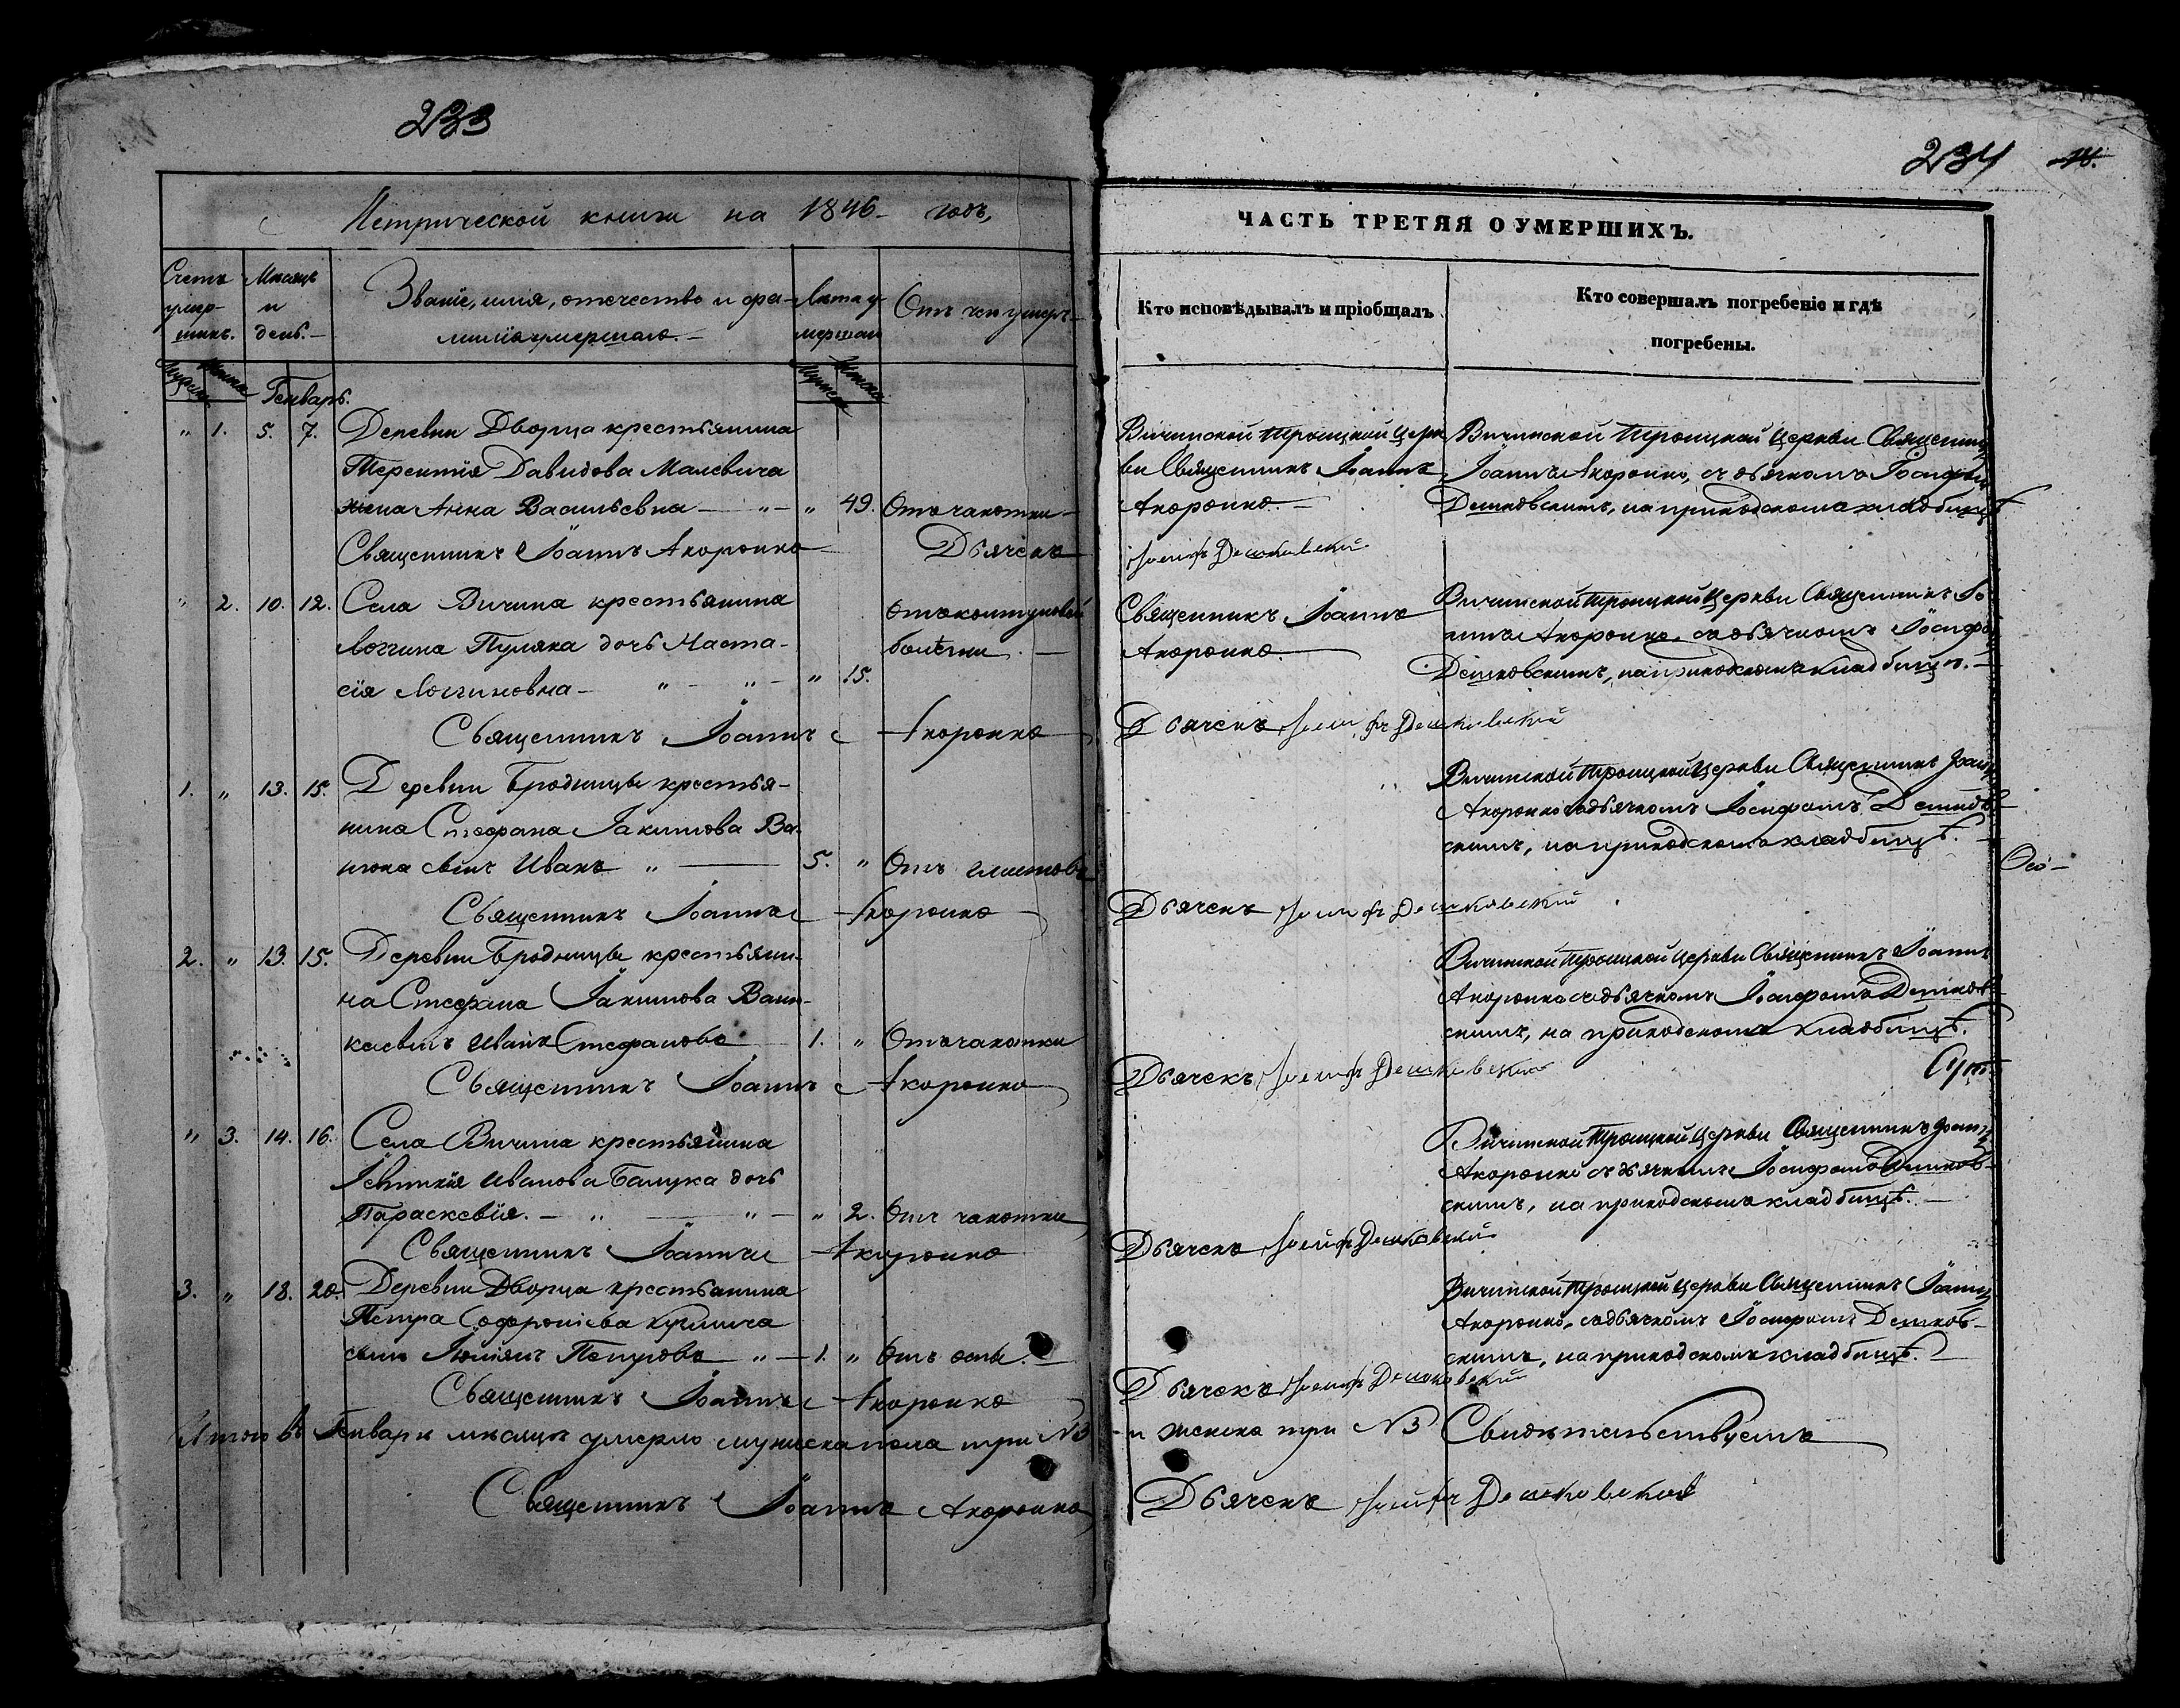 233
Метрической книги на 1846 годъ,
Счетъ умер-шихъ.
Мѣсяцъ и день.
Званіе, имя, отечество и фа-
милія умершаго.
Лѣта умершаго
Отъ чего умеръ
Мужеска Женска
Генварь.
Мужеска Женска
„ 1. 5. 7. Деревни Дворца крестьянина
Терентія Давидова Малевича
жена Анна Васильевна „ 49. Отъ чахотки
Священникъ Іоаннъ Акоронко Дьячекъ
„ 2. 10. 12. Села Вичина крестьянина
Логгина Пуляка дочь Наста-
сія Логгиновна „ 15.
болѣзни.
Священникъ Іоаннъ Акоронко
1. „ 13. 15. Деревни Бродницы крестья-
нина Стефана Іакимова
сынъ Иванъ 5. „ Отъ глистовъ
Священникъ Іоаннъ Акоронко
2. „ 13. 15. Деревни Бродницы крестьяни-
на Стефана Іакимова
сынъ Иванъ Стефановъ 1. „ Отъ чахотки
Священникъ Іоаннъ Акоронко
„ 3. 14. 16. Села Вичина крестьянина
Иванова дочь
Параскевія. „ 2. Отъ чахотки
Священникъ Іоаннъ Акоронко
3. „ 18. 20. Деревни Дворца крестьянина
Петра
сынъ Петровъ 1. „ Отъ оспы.
Священникъ Іоаннъ Акоронко
Итого въ Генварѣ мѣсяцѣ умерло мужеска пола три №3
Священникъ Іоаннъ Акоронко
234
ЧАСТЬ ТРЕТЯЯ О УМЕРШИХЪ.
Кто исповѣдывалъ и пріобщалъ
Кто совершалъ погребеніе и гдѣ
погребены.
Вичинской Троицкой Церк
ви Священникъ Іоаннъ
Акоронко.
Іосифъ Дешковскій
Вичинской Троицкой Церкви Священникъ
Іоаннъ Акоронко, съ дьячкомъ Іосифомъ
Дешковскимъ, на приходскомъ кладбищѣ
Священникъ Іоаннъ
Акоронко.
Вичинской Троицкой Церкви Священникъ Іо-
аннъ Акоронко съ дьячкомъ Іосифомъ
Дешковскимъ, на приходскомъ кладбищѣ.
Дьячекъ Іосифъ Дешковскій
Вичинской Троицкой Церкви Священникъ Іоаннъ
Акоронко съ дьячкомъ Іосифомъ Дешков-
скимъ, на приходскомъ кладбищѣ.
Дьячекъ Іосифъ Дешковскій
Вичинской Троицкой Церкви Священникъ Іоаннъ
Акоронко съ дьячкомъ Іосифомъ Дешков-
скимъ, на приходскомъ кладбищѣ.
Дьячекъ Іосифъ Дешковскій
Вичинской Троицкой Церкви Священникъ Іоаннъ
Акоронко съ дьячкомъ Іосифомъ Дешков-
скимъ, на приходскомъ кладбищѣ.
Дьячекъ Іосифъ Дешковскій
Вичинской Троицкой Церкви Священникъ Іоаннъ
Акоронко, съ дьячкомъ Іосифомъ Дешков-
скимъ, на приходскомъ кладбищѣ.
Дьячекъ Іосифъ Дешковскій
и женска три №3 Свидѣтельствуемъ
Дьячекъ Іосифъ Дешковскій